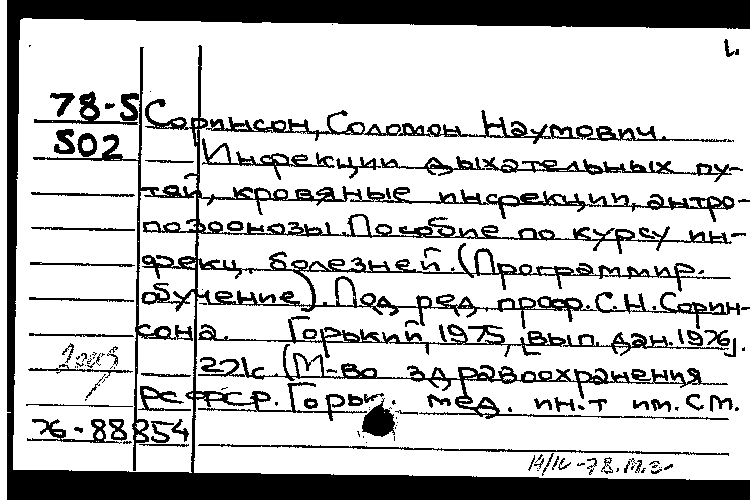 1.
78-5 Соринсон, Соломон Наумович.
502 Инфекции дыхательных пу-
тей, кровяные инфекции, антро-
позоонозы. Пособие по курсу ин-
фекц. болезней. (Программир.
обучение). Под ред. проф. С.Н. Сорин-
сона. Горький, 1975, [вып. дан. 1976].
271с. (М-во здравоохранения
РСФСР. Горьк. мед. ин-т им. С.М.
76-88854
14/IV-78. М.З-